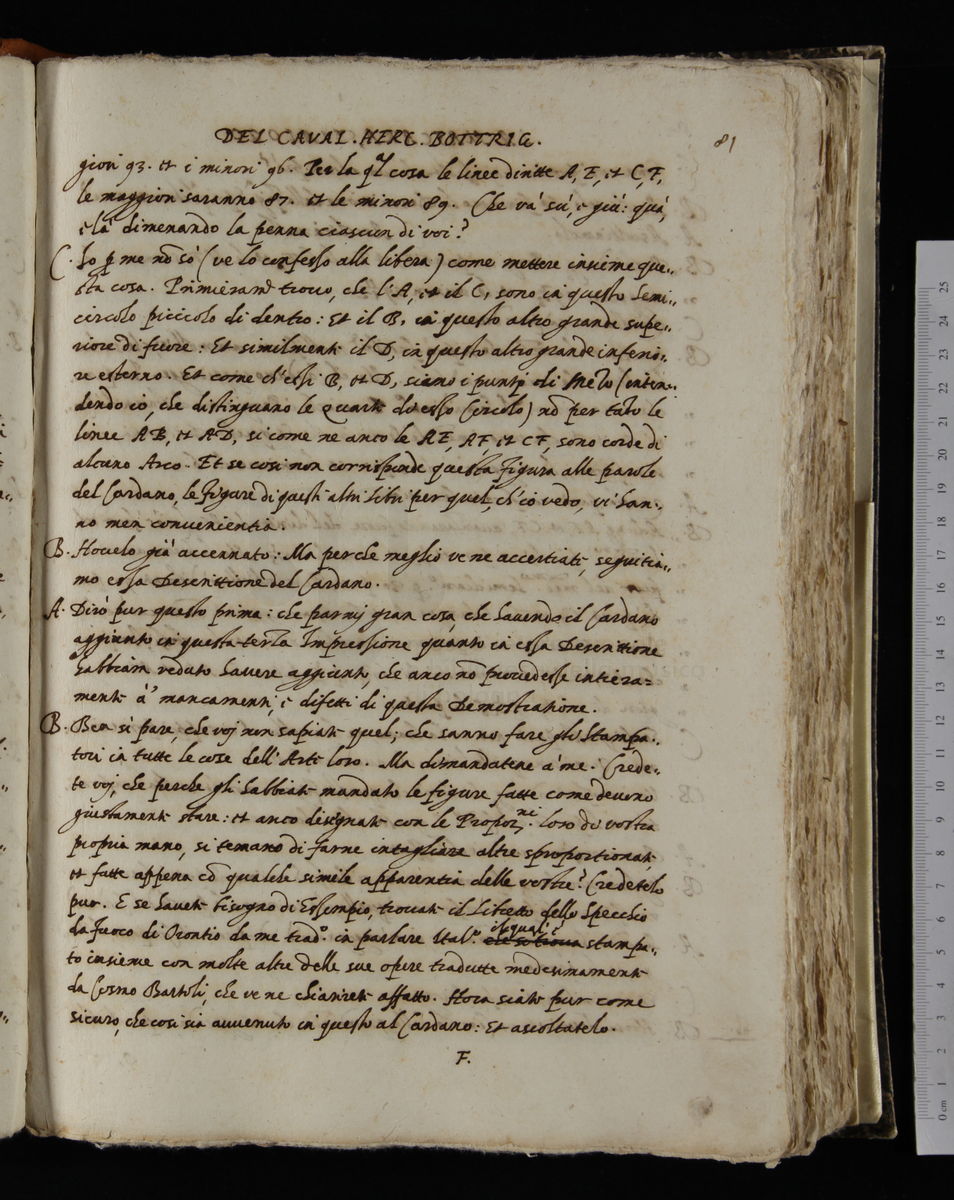 DEL CAVAL. HERC. BOTTRIG.
81
giori 93. et i minori 96. Per la ql cosa le linee diritte A, E, et C, F,
le maggiori saranno 87. et le minori 89. Che và sù, e giù: quà,
e là dimenando la penna ciascun di voi?
C. Io p me nō sò (ve lo confesso alla libera) come mettere insieme que,,
sta cosa. Primieramte trovo, che l'A, et il C, sono in questo Semi,,
circolo piccolo di dentro: Et il B, in questo altro grande supe,,
riore di fuore: Et similmente il D, in questo altro grande inferio,,
re esterno. Et come ch'essi B, et D, siano i punti di Mezo (inten,,
dendo io, che distinguano le quarte di esso Circolo) nō per tato le
linee AB, et AD, si come ne anco le AE, AF, et CF, sono corde di
alcuno Arco. Et se cosi non corrisponde questa figura alle parole
del Cardano, le figure di questi altri libri per quel, ch'io vedo, vi han,,
no men convenientia.
B. Hovelo già accennato: Ma perche meglio ve ne accertiate, seguitia,,
mo essa Descrittione del Cardano.
A. Dirò pur questo prima: che parmi gran cosa, che havendo il Cardano
aggiunto in questa terza Impressione quanto in essa Descrittione
habbiam veduto havere aggiunto, che anco nō provedesse intiera=
mente à mancamenti, e difetti di questa Demostratione.
B. Ben si pare, che voi non sapiate quel; che sanno fare gli Stampa,,
tori in tutte le cose dell'Arte loro. Ma dimandatene à me. Crede,,
te voi, che perche gli habbiate mandato le figure fatte come deveno
giustamente stare: et anco disignate con le Proporni. loro di vostra
propria mano, si temano di farne intagliare altre sproportionate
et fatte appena cō qualche simile apparentia delle vostre? Credetelo
pur. E se havete bisogno di Essempio, trovate il Libretto dello Specchio
da fuoco di Orontio da me trado. in parlare Italo. il qual è stampa,,
to insieme con molte altre delle sue opere tradutte medesimamente
da Cosmo Bartoli, che ve ne chiarirete affatto. Hora siate pur come
sicuro, che cosi sia avvenuto in questo al Cardano: Et ascoltatelo.
F.